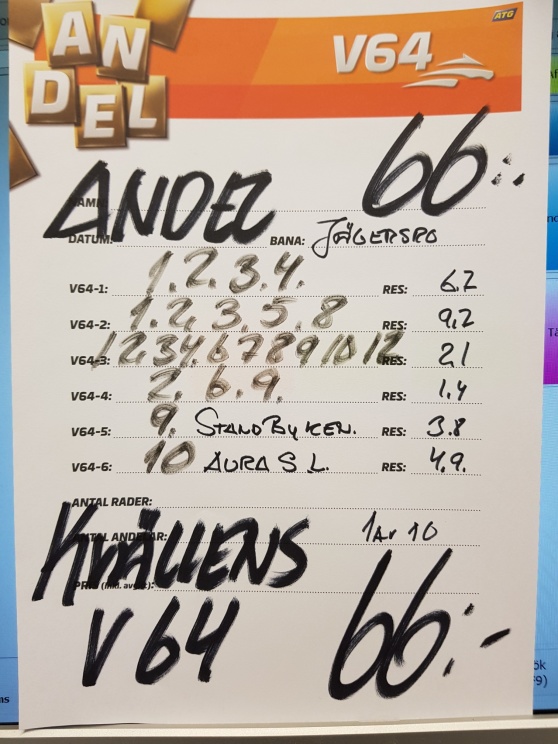 ANDEL
ATG
V64
NAMN:
ANDEL 66:-
DATUM: BANA: JÄGERSRO
V64-1: 1. 2. 3. 4. RES: 6,7
V64-2: 1. 2. 3. 5. 8 RES: 9,2
V64-3: 1 2 3 4. 6 7 8 9 10 12 RES: 2,1
V64-4: 2. 6. 9. RES: 1,4
V64-5: 9. STAND BY KEN. RES: 3.8
V64-6: 10 AURA S L. RES: 4,9.
ANTAL RADER:
ANTAL ANDELAR: 1 AV 10
KVÄLLENS
PRIS (inkl. avgift):
V64 66:-